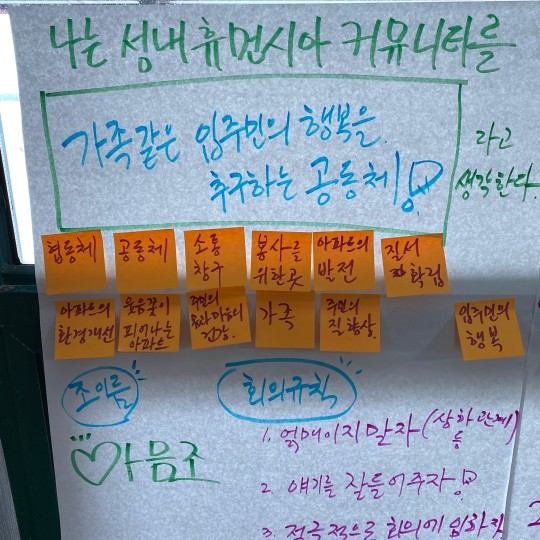 나는 성내휴먼시아 커뮤니티를
가족같은 입주민의 행복을
추구하는 공동체
라고
생각한다.
협동체
공동체
소통
창구
봉사를
위한곳
아파트의
발전
질서
확립
아파트의
환경개선
웃음꽃이
피어나는
아파트
주민의
몸과마음의
건강.
가족
주민의
질 향상
입주민의
행복
조이름
♡마음조
회의규칙
1. 얽매이지말자 (상하관계
등)
2. 얘기를 잘들어주자
3. 적극적으로 회의에 임하자